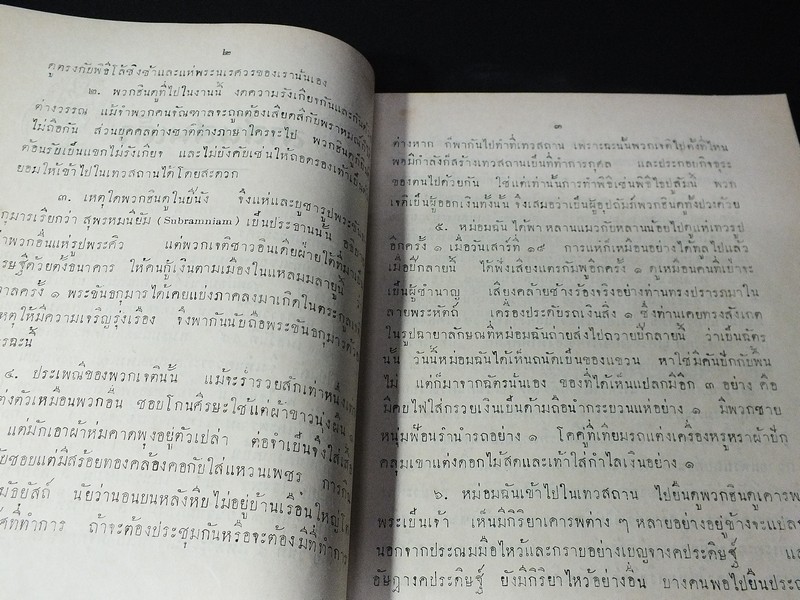 ๒
ดูตรงกับพิธีโล้ชิงช้าและแห่พระนเรศวรของเรานั่นเอง
๒. พวกฮินดูที่ไปในงานนี้ งดความรังเกียจกันและกัน
ต่างวรรณ แม้จำพวกคนจัณฑาลจะถูกต้องเสียดสีกับพราหมณ์ก็
ไม่ถือกัน ส่วนบุคคลต่างชาติต่างภาษาใครจะไป พวกฮินดูก็ยินดี
ต้อนรับเป็นแขกไม่รังเกียจ และไม่บังคับเช่นให้ถอดรองเท้าเป็นต้น
ยอมให้เข้าไปในเทวสถานได้โดยสะดวก
๓. เหตุใดพวกฮินดูในปีนัง จึงแห่และบูชารูปพระขันธ
กุมารเรียกว่า สุพรหมนิยัม (Subramniam) เป็นประธานนั้น
พวกอื่นแห่รูปพระศิว แต่พวกเจตีชาวอินเดียฝ่ายใต้ที่มาเป็น
เศรษฐีด้วยตั้งธนาคาร ให้คนกู้เงินตามเมืองในแหลมมลายูนี้
กาลครั้ง ๑ พระขันธกุมารได้เคยแบ่งภาคลงมาเกิดในตระกูล
เหตุให้มีความเจริญรุ่งเรือง จึงพากันนับถือพระขันธกุมาร
ฉะนี้
๔. ประเพณีของพวกเจตีนั้น แม้จะร่ำรวยสักเท่าหนึ่งเท่าใด
แต่งตัวเหมือนพวกอื่น ชอบโกนศีรษะใช้แต่ผ้าขาวนุ่งผืน ๑
แต่มักเอาผ้าห่มคาดพุงอยู่ตัวเปล่า ต่อจำเป็นจึงใส่เสื้อ
ชอบแต่มีสร้อยทองคล้องคอกับใส่แหวนเพชร
มัธยัสถ์ นัยว่านอนบนหลังหีบ ไม่อยู่บ้านเรือนใหญ่โต
ที่ทำการ ถ้าจะต้องประชุมกันหรือจะต้องมีที่ทำการ
๓
ต่างหาก ก็พากันไปทำที่เทวสถาน เพราะฉะนั้นพวกเจตีไปตั้งที่ไหน
พอมีกำลังก็สร้างเทวสถานเป็นที่ทำการกุศล และประกอบกิจธุระ
ของตนไปด้วยกัน ใช่แต่เท่านั้นการทำพิธีเช่นพิธีไธปูสัมนี้ พวก
เจตีเป็นผู้ออกเงินทั้งนั้น จึงเสมอว่าเป็นผู้อุปถัมภ์พวกฮินดูทั้งปวงด้วย
๕. หม่อมฉันได้พาหลานแมวกับหลานน้อยไปดูแห่เทวรูป
อีกครั้ง ๑ เมื่อวันเสาร์ที่ ๑๙ การแห่ก็เหมือนอย่างได้ทูลไปแล้ว
เมื่อปีกลายนี้ ได้ฟังเสียงแตรกัมพูอีกครั้ง ๑ ดูเหมือนคนที่เป่าจะ
เป็นผู้ชำนาญ เสียงคล้ายช้างร้องจริงอย่างท่านทรงปรารภมาใน
ลายพระหัตถ์ เครื่องประดับรถเงินสิ่ง ๑ ซึ่งท่านเคยทรงสังเกต
ในรูปฉายาลักษณที่หม่อมฉันถ่ายส่งไปถวายปีกลายนี้ ว่าเป็นฉัตร
นั้น วันนี้หม่อมฉันได้เห็นถนัดเป็นของแขวน หาใช่มีคันปักกับพื้น
ไม่ แต่ก็มาจากฉัตรนั่นเอง ของที่ได้เห็นแปลกมีอีก ๓ อย่าง คือ
มีคบไฟใส่กรวยเงินเป็นด้ามถือนำกระบวนแห่อย่าง ๑ มีพวกชาย
หนุ่มฟ้อนรำนำรถอย่าง ๑ โคคู่ที่เทียมรถแต่งเครื่องหรูหราผ้าปัก
คลุมเขาแต่งดอกไม้สดและเท้าใส่กำไลเงินอย่าง ๑
๖. หม่อมฉันเข้าไปในเทวสถาน ไปยืนดูพวกฮินดูเคารพ
พระเป็นเจ้า เห็นมีกิริยาเคารพต่าง ๆ หลายอย่างอยู่ข้างจะแปลก
นอกจากประณมมือไหว้และกราบอย่างเบญจางคประดิษฐ์
อัษฎางคประดิษฐ์ ยังมีกิริยาไหว้อย่างอื่น บางคนพอไปยืนประณม